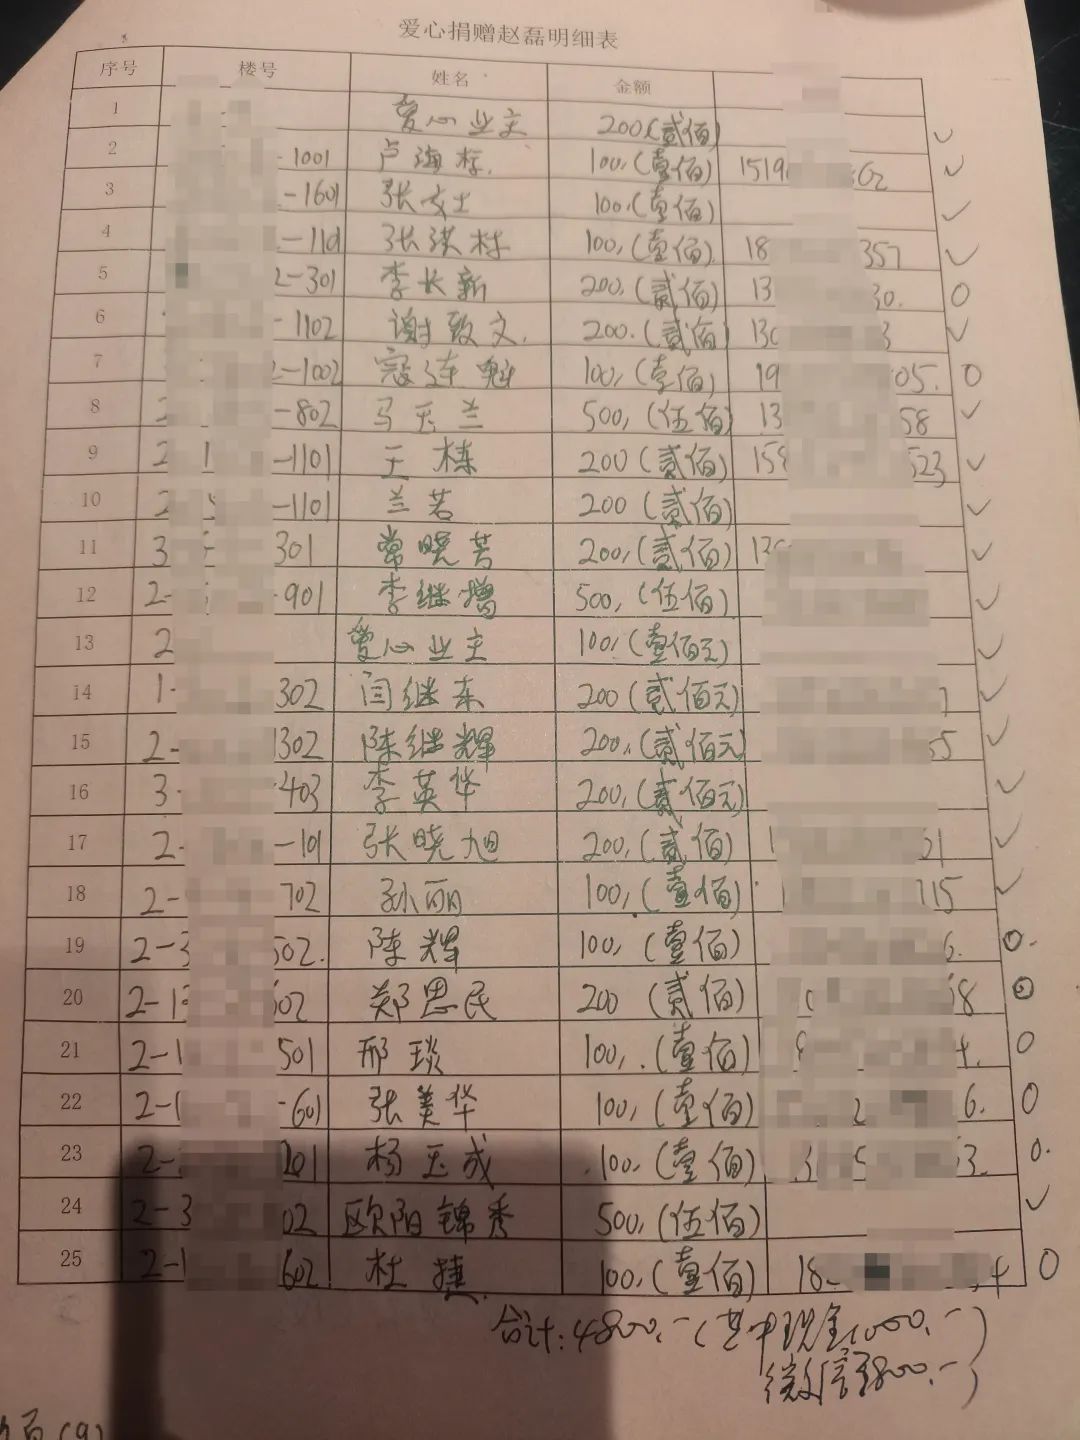 爱心捐赠赵磊明细表
序号 楼号 姓名 金额
1 爱心业主 200(贰佰) ✓
2 -1001 卢海标. 100,(壹佰) 1519 62 ✓
3 -1601 张女士 100,(壹佰) ✓
4 -1101 张洪栋 100,(壹佰) 18 357 ✓
5 2-301 李长新 200,(贰佰) 13 30. O
6 -1102 谢致文. 200.(贰佰) 130 3 ✓
7 2-1002 寇连魁 100,(壹佰) 19 05. O
8 2 -802 马玉兰 500,(伍佰) 13 58 ✓
9 2 1 -1101 王栋 200(贰佰) 159 523 ✓
10 2 -1101 兰若 200(贰佰) ✓
11 3 301 常晓芳 200,(贰佰) 130 ✓
12 2- -901 李继增 500,(伍佰) ✓
13 2 爱心业主 100,(壹佰元) ✓
14 1- 302 闫继东 200(贰佰元) ✓
15 2- 302 陈继辉 200,(贰佰元) 55 ✓
16 3- 403 李英华 200,(贰佰元) ✓
17 2- -101 张晓旭 200,(贰佰) 1 21 ✓
18 2- 702 孙丽 100,(壹佰) 715 ✓
19 2-3 502. 陈辉 100,(壹佰) 6. O.
20 2-13 602 郑思民 200(贰佰) 68 O
21 2-1 501 邢琰 100,.(壹佰) 4. O
22 2-1 -601 张美华 100,(壹佰) 2 6. O
23 2- 201 杨玉成 .100,(壹佰) 3 5 63. O.
24 2-3 02 欧阳锦秀 500,(伍佰) ✓
25 2-1 602 杜捷. 100,(壹佰) 18- 4 O
合计:4800.-(其中现金1000.-)
微信3800.-)
页(9)